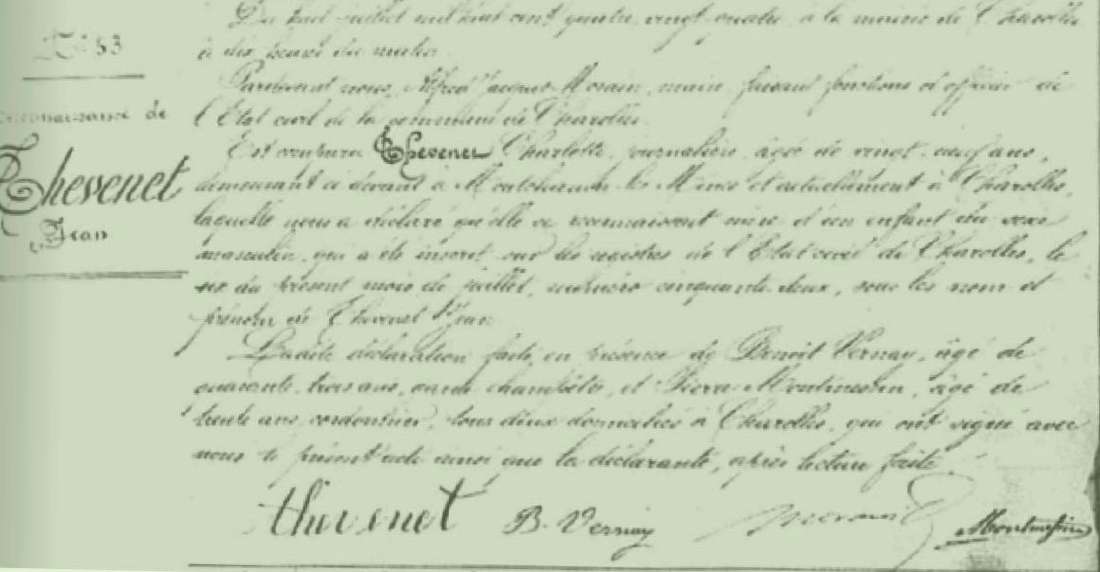 N° 53
Reconnaissance de
Thevenet
Jean
Du huit juillet mil huit cent quatre vingt quatre, à la mairie de Charolles
à dix heures du matin.
Pardevant nous, Alfred Jacques Morain, maire faisant fonctions d'officier de
l'Etat civil de la commune de Charolles.
Est comparu Thevenet Charlotte, journalière, âgée de vingt-neuf ans,
demeurant ci devant à Montchanin-les-Mines et actuellement à Charolles,
laquelle nous a déclaré qu'elle se reconnaissait mère d'un enfant du sexe
masculin, qui a été inscrit sur les registres de l'Etat civil de Charolles, le
six du présent mois de juillet, numéro cinquante-deux, sous les nom et
prénom de Thevenet Jean
Ladite déclaration faite en présence de Benoît Vernay, âgé de
quarante-trois ans, garde champêtre, et Pierre âgé de
trente ans, cordonnier, tous deux domiciliés à Charolles, qui ont signé avec
nous le présent acte ainsi que la déclarante, après lecture faite
thevenet B. Vernay